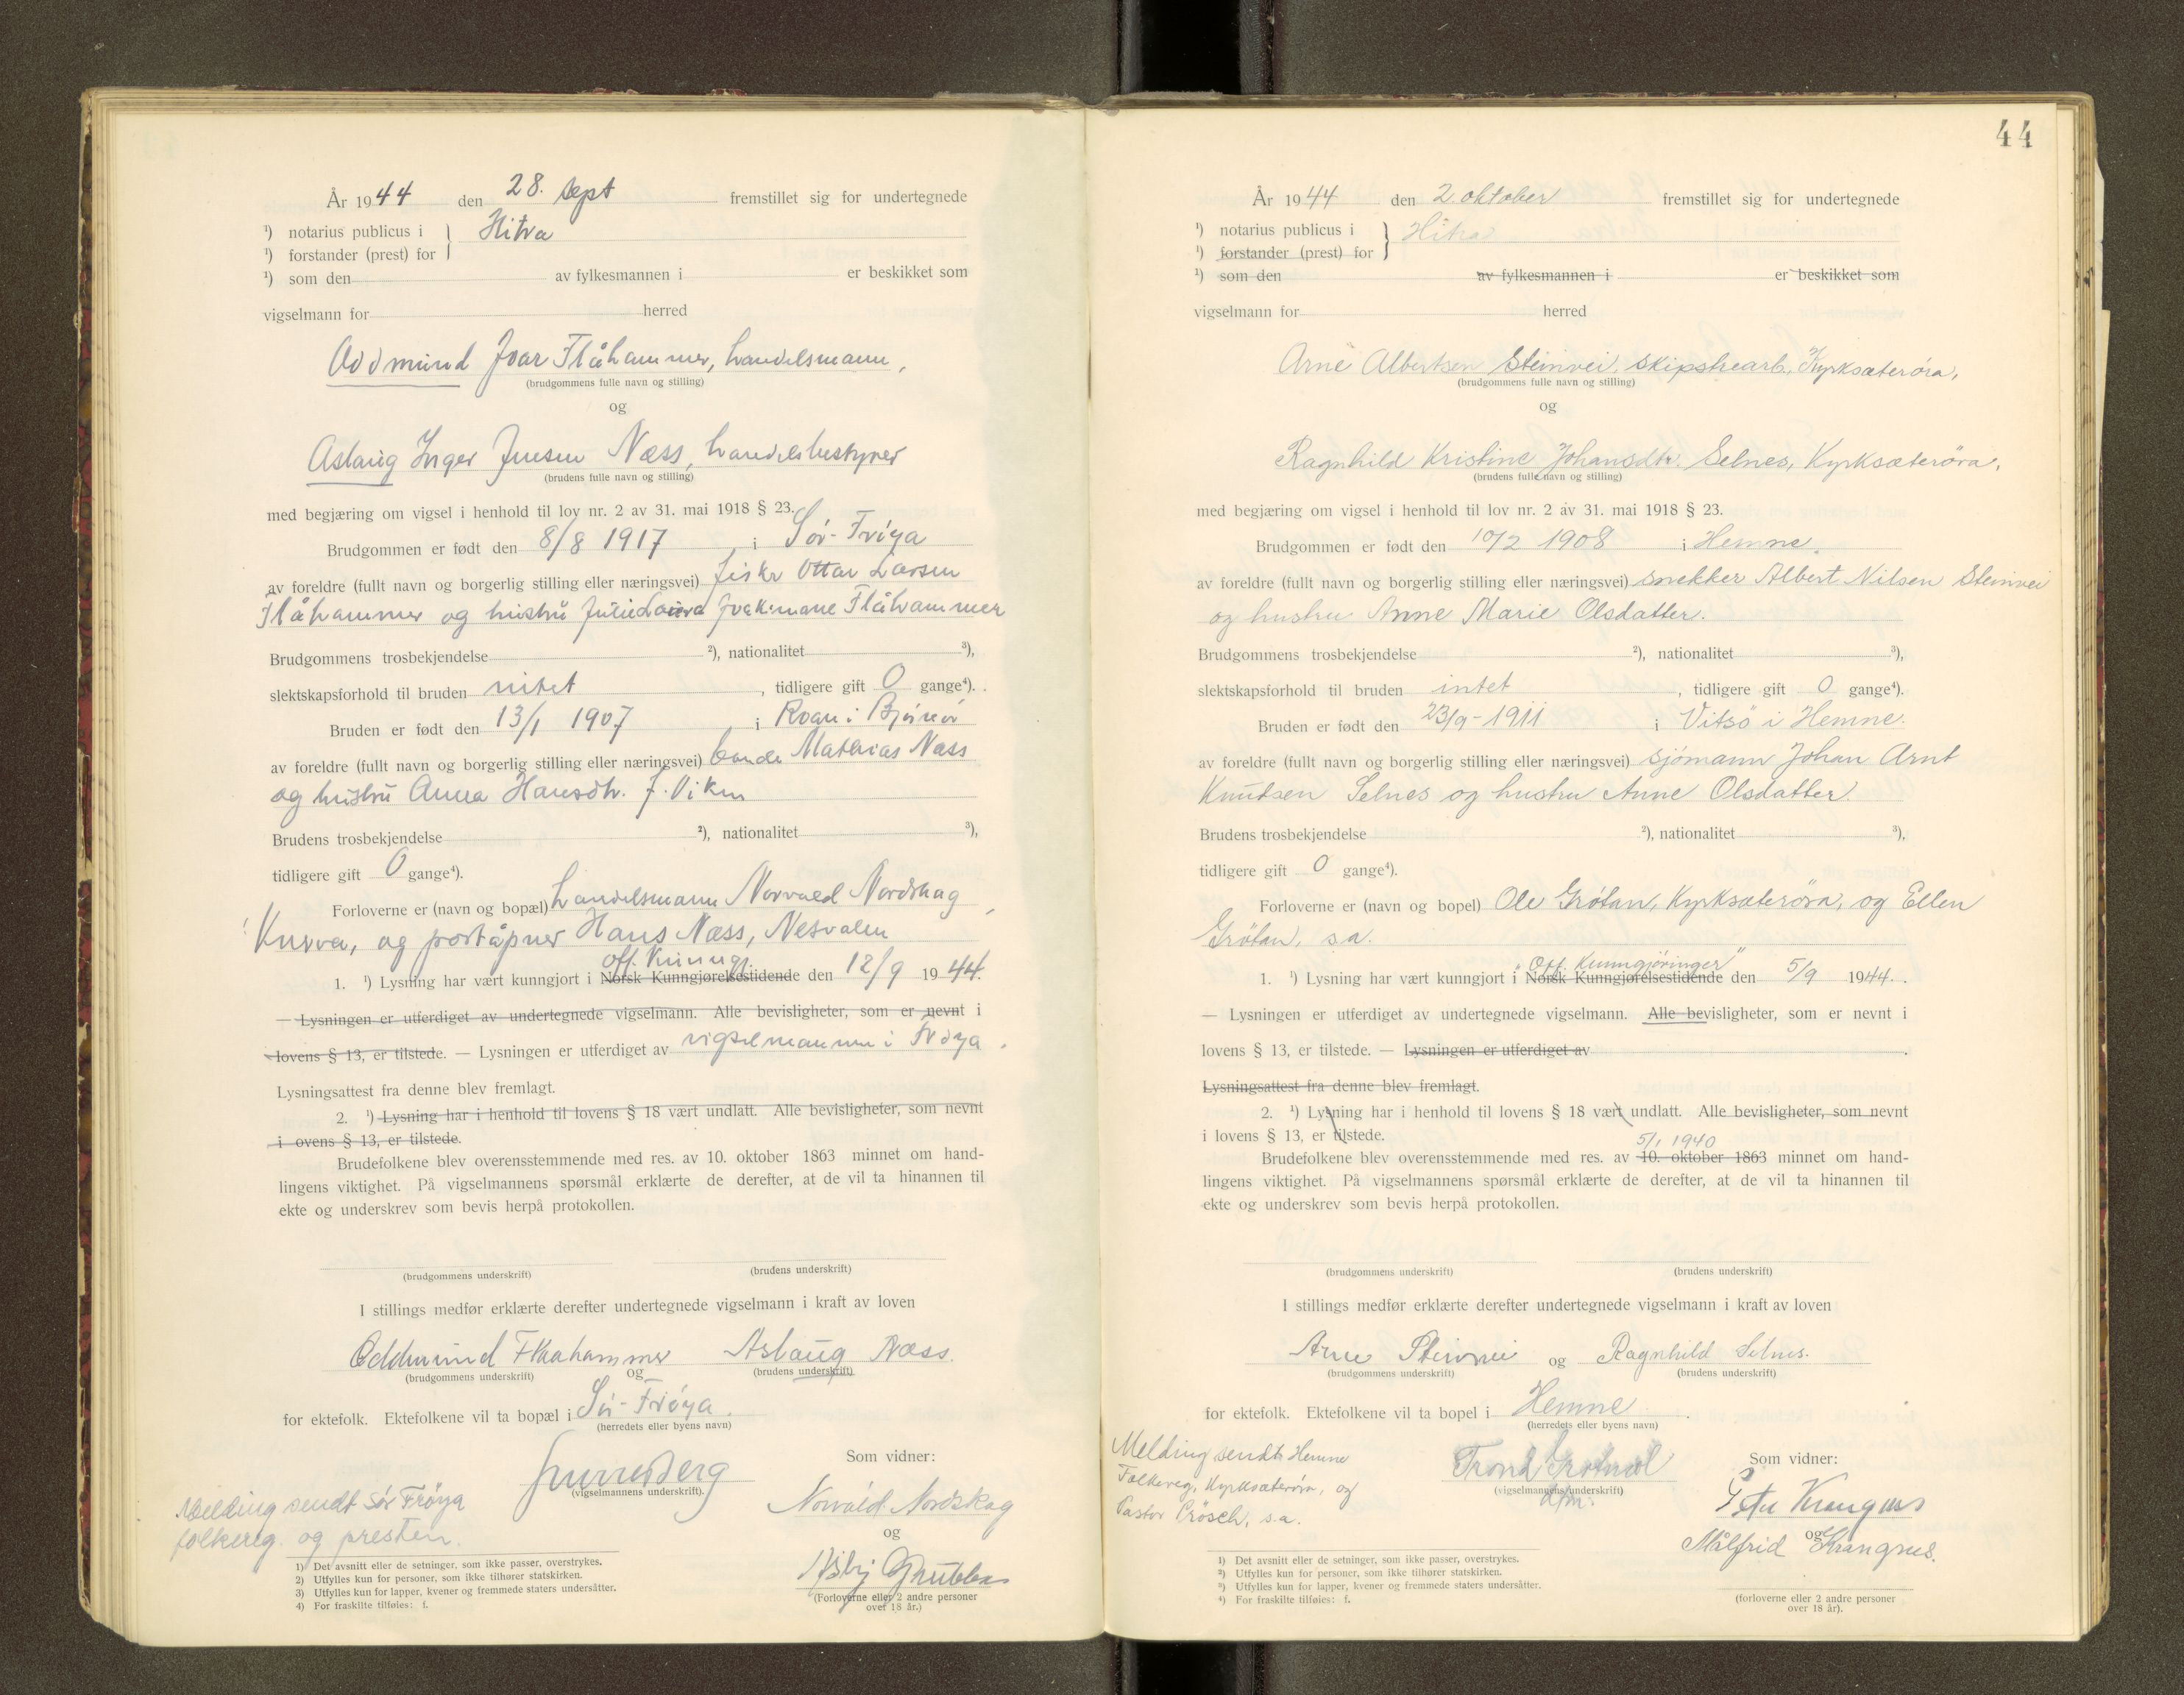 År 1944 den 28. sept fremstillet sig for undertegnede
¹) notarius publicus i } Hitra
¹) forstander (prest) for
¹) som den av fylkesmannen i er beskikket som
vigselmann for herred
Oddmund Ivar Flåhammer, handelsmann,
(brudgommens fulle navn og stilling)
og
Aslaug Inger Jensen Næss, handelsbestyrer
(brudens fulle navn og stilling)
med begjæring om vigsel i henhold til lov nr. 2 av 31. mai 1918 § 23.
Brudgommen er født den 8/8 1917 i Sør-Frøya
av foreldre (fullt navn og borgerlig stilling eller næringsvei) fisker Ottar Larsen
Flåhammer og hustru Julie Flåhammer
Brudgommens trosbekjendelse ²), nationalitet ³),
slektskapsforhold til bruden intet, tidligere gift 0 gange⁴).
Bruden er født den 13/1 1907 i Roan i Bjørnör
av foreldre (fullt navn og borgerlig stilling eller næringsvei) bonde Mathias Næss
og hustru Anna Hansdtr. f. Viken
Brudens trosbekjendelse ²), nationalitet ³),
tidligere gift 0 gange⁴).
Forloverne er (navn og bopæl) handelsmann Norvald Nordskag
og poståpner Hans Næss, Nesvalen
off. Kunngj.
1. ¹) Lysning har vært kunngjort i Norsk Kunngjørelsestidende den 12/9 1944.
— Lysningen er utferdiget av undertegnede vigselmann. Alle bevisligheter, som er nevnt i
lovens § 13, er tilstede. — Lysningen er utferdiget av vigselmannen i Frøya.
Lysningsattest fra denne blev fremlagt.
2. ¹) Lysning har i henhold til lovens § 18 vært undlatt. Alle bevisligheter, som nevnt
i ovens § 13, er tilstede.
Brudefolkene blev overensstemmende med res. av 10. oktober 1863 minnet om hand-
lingens viktighet. På vigselmannens spørsmål erklærte de derefter, at de vil ta hinannen til
ekte og underskrev som bevis herpå protokollen.
(brudgommens underskrift) (brudens underskrift)
I stillings medfør erklærte derefter undertegnede vigselmann i kraft av loven
Oddmund Flaahammer Aslaug Næss.
(brudgommens underskrift) og (brudens underskrift)
for ektefolk. Ektefolkene vil ta bopæl i Sør-Frøya.
(herredets eller byens navn)
Som vidner:
(vigselmannens underskrift).
Norvald Nordskag
Melding sendt Sør Frøya
folkereg. og presten.
og
Grubba
(Forloverne eller 2 andre personer
over 18 år.)
1) Det avsnitt eller de setninger, som ikke passer, overstrykes.
2) Utfylles kun for personer, som ikke tilhører statskirken.
3) Utfylles kun for lapper, kvener og fremmede staters undersåtter.
4) For fraskilte tilføies: f.
44
År 1944 den 2. oktober fremstillet sig for undertegnede
¹) notarius publicus i } Hitra
¹) forstander (prest) for
¹) som den av fylkesmannen i er beskikket som
vigselmann for herred
Arne Albertsen Steinvei, skipstrearb., Kyrksæterøra,
(brudgommens fulle navn og stilling)
og
Ragnhild Kristine Johansdtr. Selnes, Kyrksæterøra,
(brudens fulle navn og stilling)
med begjæring om vigsel i henhold til lov nr. 2 av 31. mai 1918 § 23.
Brudgommen er født den 10/2 1908 i Hemne.
av foreldre (fullt navn og borgerlig stilling eller næringsvei) snekker Albert Nilsen Steinvei
og hustru Anne Marie Olsdatter.
Brudgommens trosbekjendelse ²), nationalitet ³),
slektskapsforhold til bruden intet, tidligere gift 0 gange⁴).
Bruden er født den 23/9-1911 i Vitsø i Hemne.
av foreldre (fullt navn og borgerlig stilling eller næringsvei) sjömann Johan Arnt
Knutsen Selnes og hustru Anne Olsdatter.
Brudens trosbekjendelse ²), nationalitet ³),
tidligere gift 0 gange⁴).
Forloverne er (navn og bopel) Ole Grötan, Kyrksæterøra, og Ellen
Grötan, s.a.
"Off. Kunngjöringer"
1. ¹) Lysning har vært kunngjort i Norsk Kunngjørelsestidende den 5/9 1944.
— Lysningen er utferdiget av undertegnede vigselmann. Alle bevisligheter, som er nevnt i
lovens § 13, er tilstede. — Lysningen er utferdiget av
Lysningsattest fra denne blev fremlagt.
2. ¹) Lysning har i henhold til lovens § 18 vært undlatt. Alle bevisligheter, som nevnt
i lovens § 13, er tilstede.
5/1 1940
Brudefolkene blev overensstemmende med res. av 10. oktober 1863 minnet om hand-
lingens viktighet. På vigselmannens spørsmål erklærte de derefter, at de vil ta hinannen til
ekte og underskrev som bevis herpå protokollen.
(brudgommens underskrift) (brudens underskrift)
I stillings medfør erklærte derefter undertegnede vigselmann i kraft av loven
Arne Steinvei og Ragnhild Selnes.
(brudgommens underskrift) (brudens underskrift)
for ektefolk. Ektefolkene vil ta bopel i Hemne.
(herredets eller byens navn)
Melding sendt Hemne
Folkereg, Kyrksæterøra, og
Pastor Prösch, s.a.
Trond
(vigselmannens underskrift)
Som vidner:
Krangnes
og
Målfrid Krangnes.
(forloverne eller 2 andre personer
over 18 år).
¹) Det avsnitt eller de setninger, som ikke passer, overstrykes.
²) Utfylles kun for personer, som ikke tilhører statskirken.
³) Utfylles kun for lapper, kvener og fremmede staters undersåtter.
⁴) For fraskilte tilføies: f.